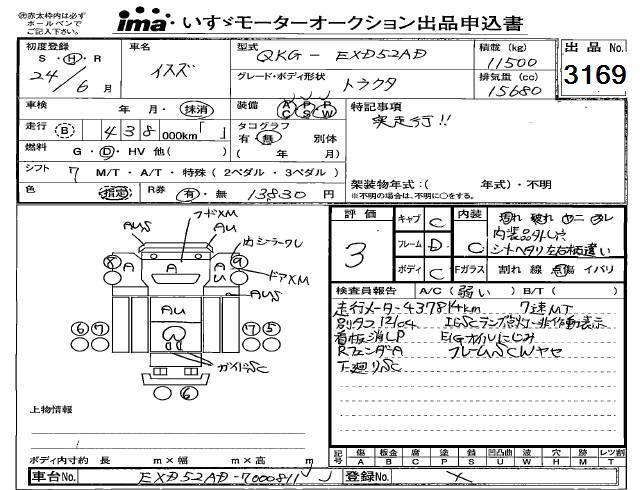 ㊟赤太枠内は必ず
ボールペンで
ご記入下さい。
ima・いすゞモーターオークション出品申込書
初度登録
S・H・R
24/6月
車名
イスズ
型式
QKG-EXD52AD
積載(kg)
11500
出品No.
3169
グレード・ボディ形状
トラクタ
排気量(cc)
15680
車検 年・月・抹消
装備 AC PS PW
特記事項
実走行!!
走行(B) 438,000km
タコグラフ
有・無 別体
( 年 月)
燃料 G・D・HV 他( )
シフト 7 M/T・A/T・特殊(2ペダル・3ペダル)
架装物年式:( 年式)・不明
※不明の場合は、不明に○をする。
色 指定 R券 有・無 13830円
評価
3
キャブ C
フレーム D
ボディ C
内装 C
濁れ 破れ
内装品外し穴
シートヘタリ左右柄違い
Fガラス 割れ 線 点傷 イバリ
検査員報告 A/C(弱い) B/T( )
走行メーター437814km 7速MT
別タコ12/04 IESCランプ点灯・非作動表示
看板消しP E/Gオイルにじみ
RフェンダA フレームSCWヤセ
下廻りSC
フードXM
AUS
AU
内シラークレ
ドアXM
AUS
A
A
A
AU
AU
AU
8
9
6 7
7 5
6
ガイドSC
上物情報
ボディ内寸約 長 m×幅 m×高 m
記号
傷 板金 腐 塗 錆 凹凸曲 波 穴 跡 レンツ割
A B C P S U W H M T
車台No. EXD52AD-7000811
登録No. ×